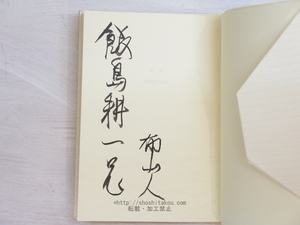 飯島耕一兄
布山人
©https://shoshitakou.com/
転載・加工禁止